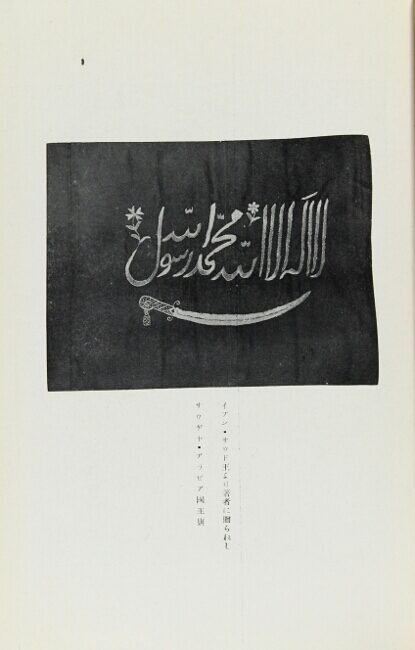 لا اله الا الله محمد رسول الله
イブン・サウド王より著者に贈られし
サウヂヤ・アラビア國王旗